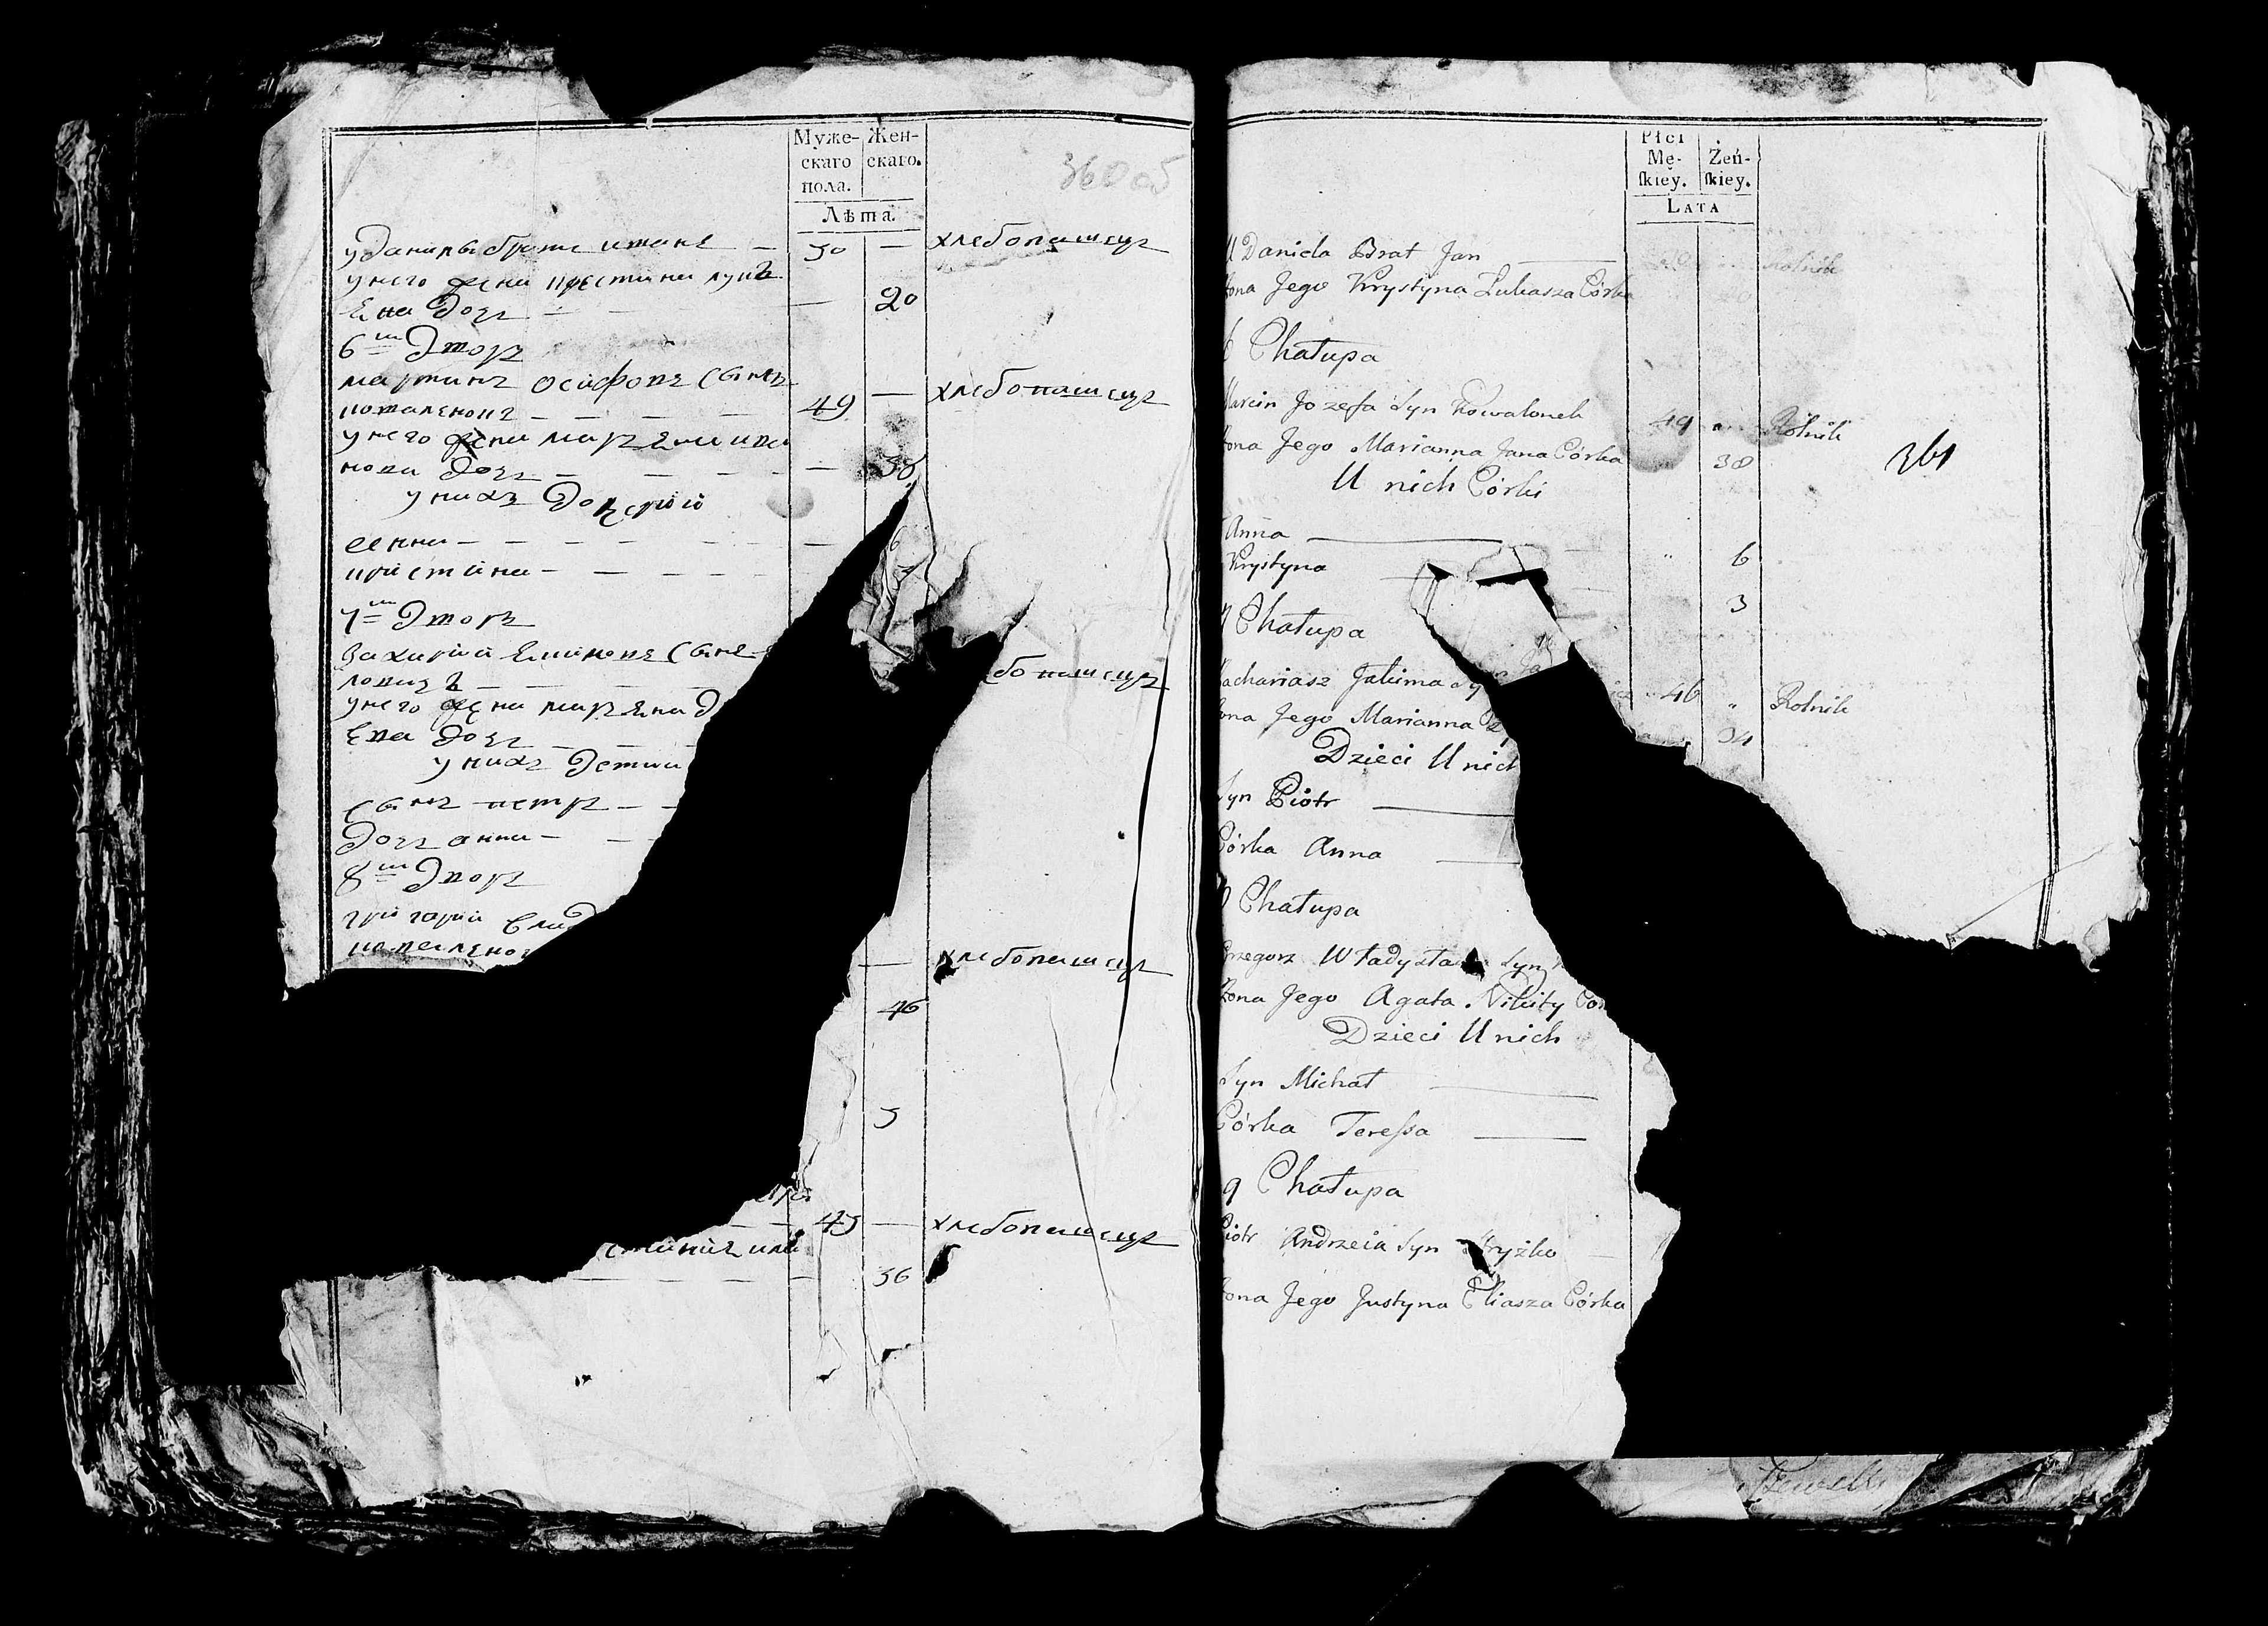 Муже- Жен-
скаго скаго.
пола.
Лѣта
360об
у Данилы братъ иванъ — 30 — хлебопашецъ
у него жена кристина лука
Ева дочь — — 20
6й Дворъ
мартинъ осифовъ сынъ
коваленокъ — — — — 49 — хлебопашецъ
у него жена марьяна ива
нова дочь — — — — 38
у нихъ дочерей
анна — — — — — —
кристина — — — — —
7й Дворъ
Захарий Якимовъ сынъ
бопашецъ
у него жена марьяна
ева дочь — —
у нихъ детей
сынъ петръ — —
дочь анна — —
8й Дворъ
григорий
— хлебопашецъ
46
5
— — 45 — хлебопашецъ
— — — — — — 36
Płci
Mę- Żeń-
skiey. skiey.
Lata
U Daniela Brat Jan — Rolnik
ona Jego Krystyna Łukasza Córka
6 Chałupa
Marcin Jozefa Syn Kowalonek 49 " Rolnik
ona Jego Marianna Jana Córka " 38
361
U nich Córki
Anna — " 6
Krystyna — 3
7 Chałupa
Zachariasz Jakima Sy 46 " Rolnik
ona Jego Marianna 34
Dzieci U nich
Syn Piotr —
Córka Anna —
8 Chałupa
Grzegorz Władysła Syn
Zona Jego Agata Nikity Cór
Dzieci U nich
Syn Michał —
Córka Teressa —
9 Chałupa
Piotr Andrzeia Syn ryżko —
ona Jego Justyna Eliasza Córka